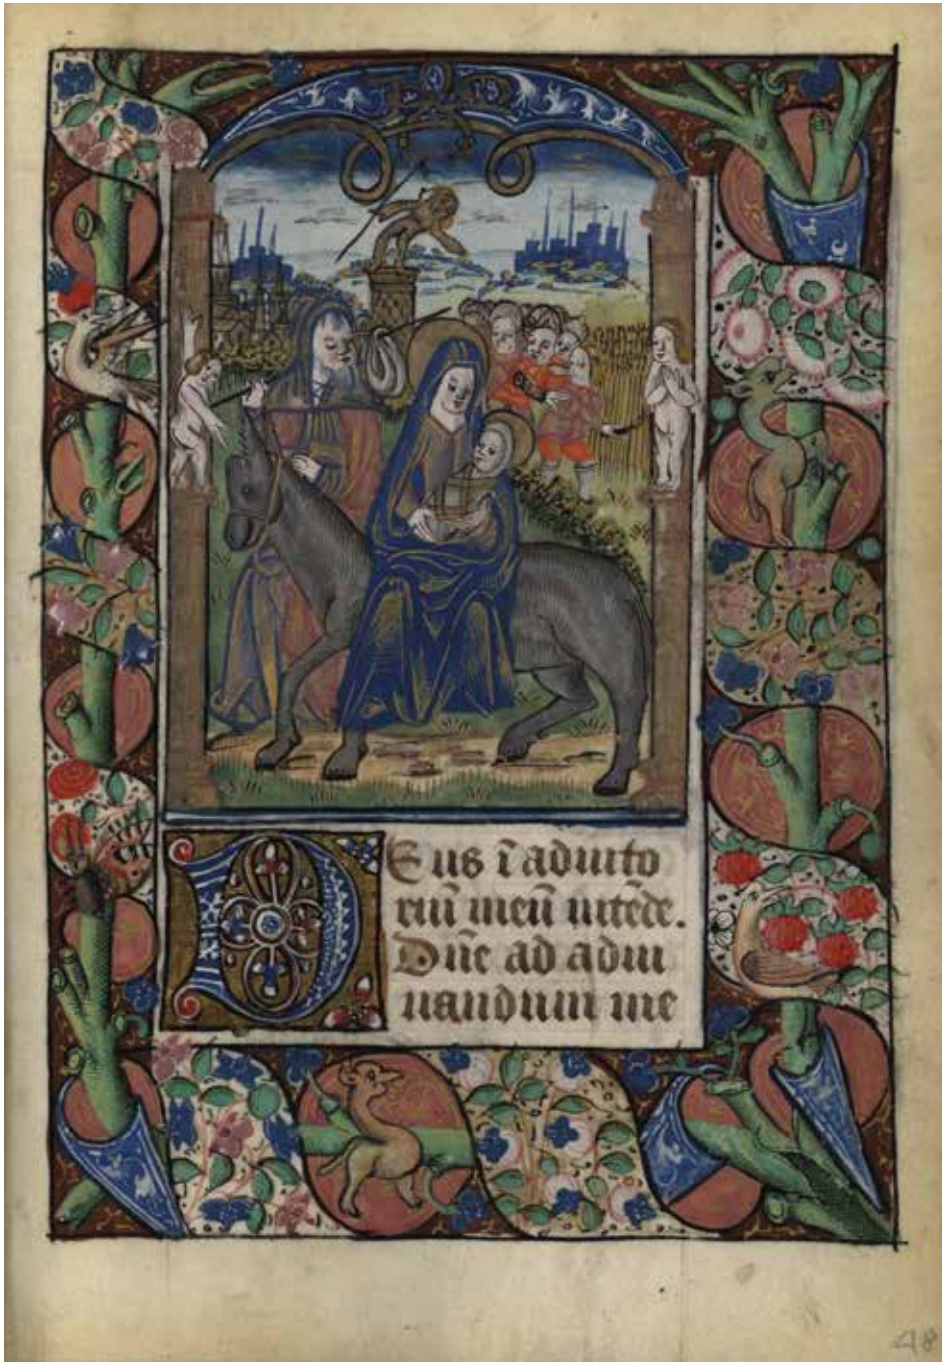 DEus ī adiuto
riū meū intēde.
Dn̄e ad adiu
uandum me
48